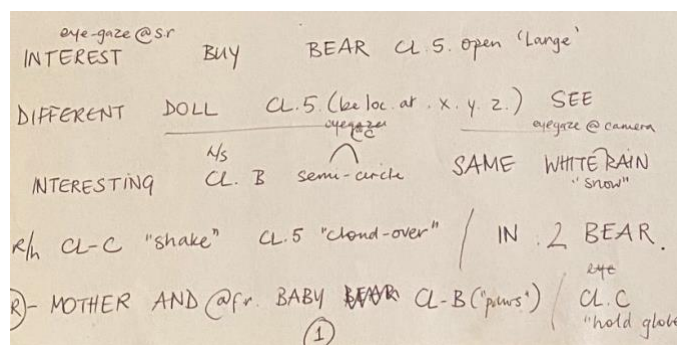 eye-gaze @ s.r
INTEREST BUY BEAR CL.5. open 'Large'
DIFFERENT DOLL CL.5. (be loc. at . x. y. z.) SEE
eyegaze @ camera
N/S
INTERESTING CL. B semi-circle SAME WHITE RAIN
"snow"
R/h CL-C "shake" CL.5 "cloud-over" / IN 2 BEAR.
eye
R - MOTHER AND @fr. BABY BEAR CL-B ("paws") / CL.C
"hold globe
1